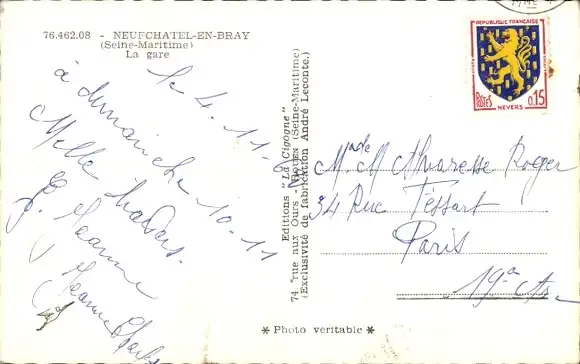 76.462.08 - NEUFCHATEL-EN-BRAY
(Seine-Maritime)
La gare
le 4.11.
à dimanche 10-11
Mille baisers.
Jeanne
Jeanne
Editions "La Cigogne"
74, rue aux Ours - ROUEN (Seine-Maritime)
(Exclusivité de fabrication André Leconte.)
REPUBLIQUE FRANÇAISE
POSTES
0,15
NEVERS
Mme M Alvaresse Roger
34 Rue Tessart
Paris
19e
* Photo véritable *